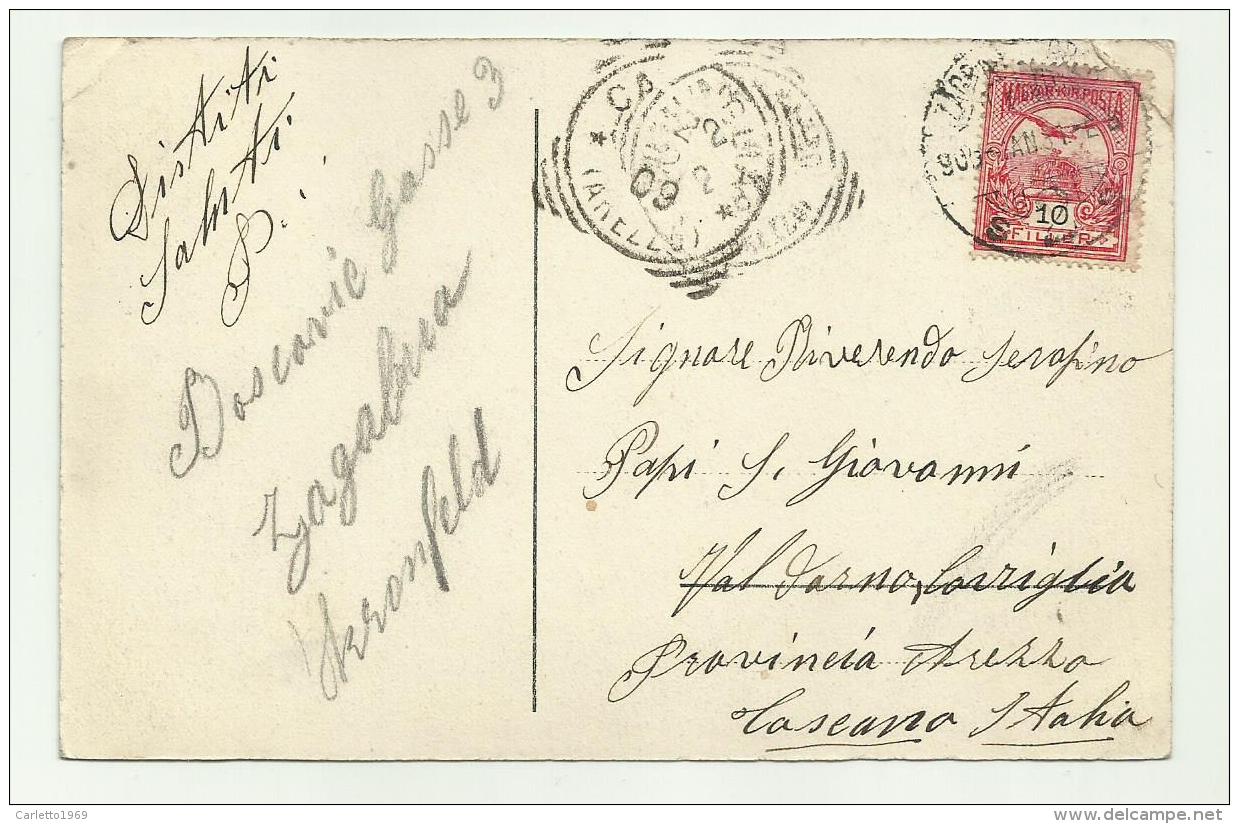 Distinti
Saluti
S.
Boscovic Gasse 3
Zagabria
Kronfeld
CA
09
22
2
MAGYAR·KIR·POSTA
10
FILLER
Signore Riverendo Serafino
Papi S. Giovanni
Val Darno, Cavriglia
Provincia Arezzo
Toscana Italia
Carletto1969
delcampe.net